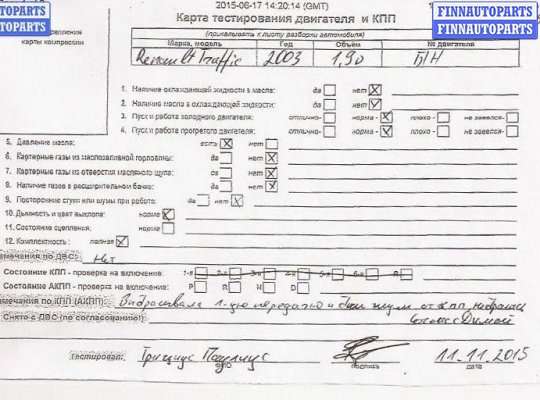 FINNAUTOPARTS
AUTOPARTS
2015-06-17 14:20:14 (GMT)
FINNAUTOPARTS
FINNAUTOPARTS
Карта тестирования двигателя и КПП
(прикалывать к листу разборки автомобиля)
карты компрессии
Марка, модель Год Объем № двигателя
Renault Traffic 2003 1,9D Б/Н
1. Наличие охлаждающей жидкости в масле: да нет
2. Наличие масла в охлаждающей жидкости: да нет
3. Пуск и работа холодного двигателя: отлично- норма - плохо- не завелся-
4. Пуск и работа прогретого двигателя: отлично- норма - плохо- не завелся-
5. Давление масла: есть нет
6. Картерные газы из маслозаливной горловины: да нет
7. Картерные газы из отверстия масляного щупа: да нет
8. Наличие газов в расширительном бачке: да нет
9. Посторонние стуки или шумы при работе: да нет
10. Дымность и цвет выхлопа: норма
11. Состояние сцепления: норма
12. Комплектность: полная
мечания по ДВС: Нет
Состояние КПП - проверка на включение: 1-я 2-я 3-я 4-я 5-я 6-я R
Состояние АКПП - проверка на включение: P R N D
мечания по КПП (АКПП): 1-ую передачу и был шум от КПП
Снято с ДВС (по согласованию): с Димой
Тестировал: Трищиус Паулиус 11.11.2015
ФИО подпись дата